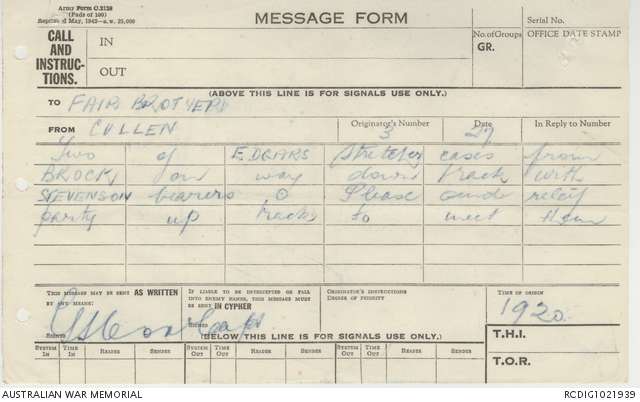 Army Form C.2128
(Pads of 100)
Reprinted May, 1942
MESSAGE FORM
Serial No.
CALL AND INSTRUCTIONS.
IN
OUT
No. of Groups
GR.
OFFICE DATE STAMP
(ABOVE THIS LINE IS FOR SIGNALS USE ONLY.)
TO FAIR BROTHERS
FROM CULLEN
Originator's Number 3
Date 27
In Reply to Number
Two of EDGARS stretcher cases from
BROCK, on way down track with
STEVENSON bearers O Please send relief
party up track to meet them
THIS MESSAGE MAY BE SENT AS WRITTEN BY ANY MEANS:
SIGNED
IF LIABLE TO BE INTERCEPTED OR FALL INTO ENEMY HANDS, THIS MESSAGE MUST BE SENT IN CYPHER
SIGNED
ORIGINATOR'S INSTRUCTIONS
DEGREE OF PRIORITY
TIME OF ORIGIN
1920
(BELOW THIS LINE IS FOR SIGNALS USE ONLY.)
T.H.I.
T.O.R.
SYSTEM IN
TIME IN
READER
SENDER
SYSTEM OUT
TIME OUT
READER
SENDER
SYSTEM OUT
TIME OUT
READER
SENDER
AUSTRALIAN WAR MEMORIAL
RCDIG1021939